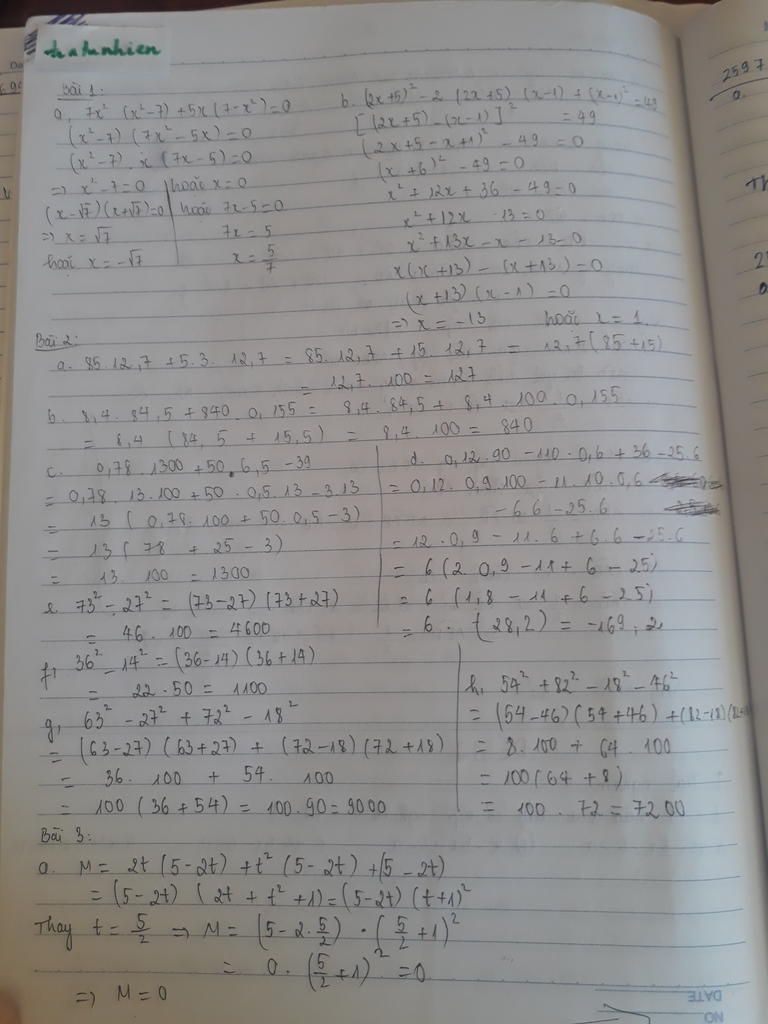 thatunhien
Bài 1:
a, 7x² (x²-7) + 5x(7-x²)=0
(x²-7) (7x²-5x)=0
(x²-7) . x (7x-5)=0
=> x²-7=0 hoặc x=0
(x-√7)(x+√7)=0 hoặc 7x-5=0
=> x=√7 7x=5
hoặc x=-√7 x=5/7
b. (2x+5)² - 2 (2x+5) (x-1) + (x-1)² =49
[(2x+5)-(x-1)]² =49
(2x+5-x+1)² -49 =0
(x+6)² -49=0
x²+12x+36 -49=0
x²+12x -13=0
x²+13x-x-13=0
x(x+13)-(x+13)=0
(x+13)(x-1)=0
=> x=-13 hoặc x=1.
Bài 2:
a. 85.12,7 +5.3.12,7 = 85.12,7 +15.12,7 = 12,7(85+15)
= 12,7.100 = 127
b. 8,4.84,5+840.0,155 = 8,4.84,5+ 8,4.100.0,155
= 8,4 (84,5 + 15,5) = 8,4.100 = 840
c. 0,78.1300+50.6,5-39
= 0,78.13.100+50.0,5.13-3.13
= 13 (0,78.100+50.0,5-3)
= 13( 78 + 25-3)
= 13. 100 =1300
d. 0,12.90-110.0,6+36-25.6
= 0,12.0,9.100-11.10.0,6
-6.6-25.6
= 12.0,9-11.6+6.6-25.6
= 6(2.0,9-11+6-25)
= 6 (1,8-11+6-25)
= 6. (28,2) = -169,2
e. 73²-27² = (73-27)(73+27)
= 46.100=4600
f, 36²-14²=(36-14)(36+14)
= 22.50= 1100
g, 63²-27²+72²-18²
= (63-27)(63+27) + (72-18)(72+18)
= 36.100 + 54. 100
= 100 (36+54) = 100.90=9000
h, 54²+82²-18²-46²
= (54-46)(54+46)+(82-18)
= 8.100+ 64.100
= 100(64+8)
= 100.72=7200
Bài 3:
a. M= 2t(5-2t)+t²(5-2t)+(5-2t)
=(5-2t) (2t+t²+1)=(5-2t)(t+1)²
Thay t=5/2 => M= (5-2.5/2).(5/2+1)²
= 0.(5/2+1)²=0
=> M=0
259.7
a.
Th
DATE
NO